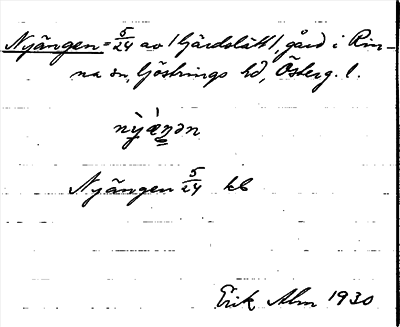 Nyängen = 5/24 av /Gärdslätt/, gård i Rin-
na sn, Göstrings hd, Österg. l.
nỳæ̀ŋən
Nyängen 5/24 kb
Erik Alm 1930